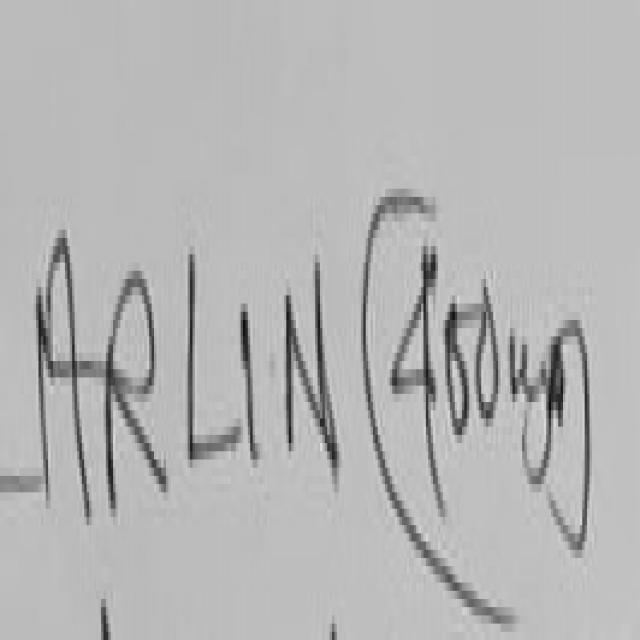 LARLIN (400mg)